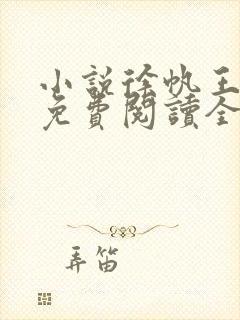 小說徐帆王
免費閱讀全
弄笛